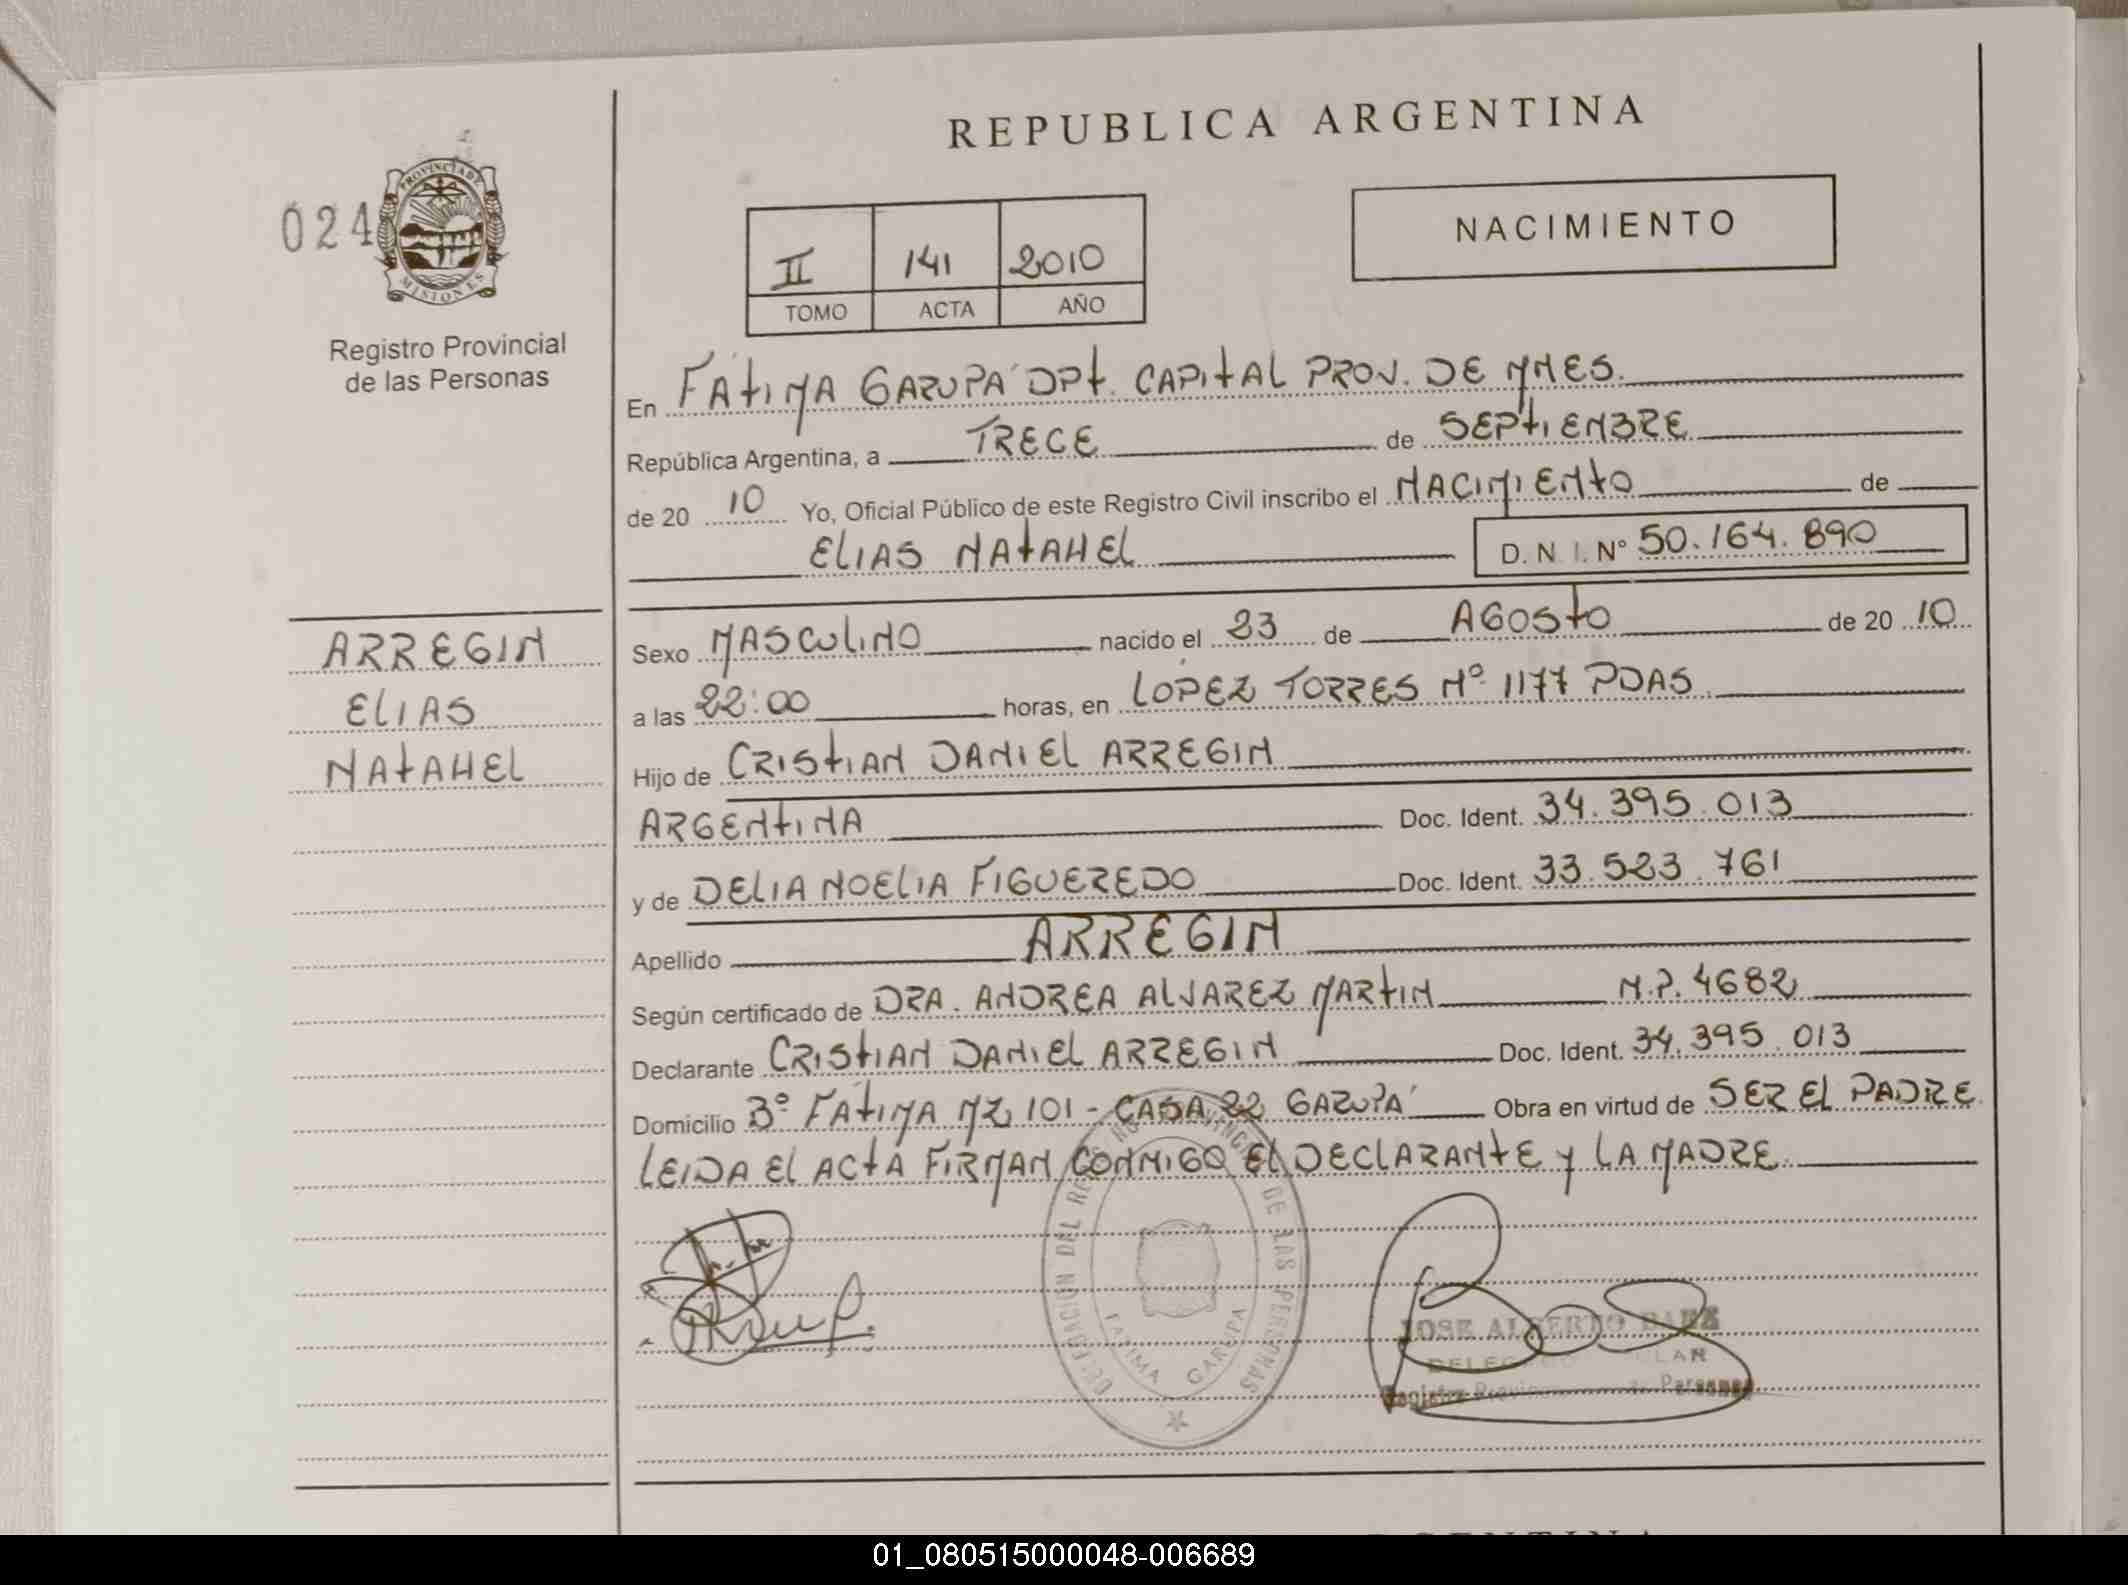 REPUBLICA ARGENTINA
024
PROVINCIA DE
MISIONES
Registro Provincial
de las Personas
II 141 2010
TOMO ACTA AÑO
NACIMIENTO
En FÁTIMA GARUPÁ DPT. CAPITAL PROV. DE MNES.
República Argentina, a TRECE de SEPTIEMBRE
de 20 10 Yo, Oficial Público de este Registro Civil inscribo el NACIMIENTO de
ELIAS NATAHEL D.N.I. Nº 50.164.890
ARREGIN
ELIAS
NATAHEL
Sexo MASCULINO nacido el 23 de AGOSTO de 20 10
a las 22:00 horas, en LÓPEZ TORRES Nº 1177 PDAS
Hijo de CRISTIAN DANIEL ARREGIN
ARGENTINA Doc. Ident. 34.395.013
y de DELIA NOELIA FIGUEREDO Doc. Ident. 33.523.761
Apellido ARREGIN
Según certificado de DRA. ANDREA ALVAREZ MARTIN M.P. 4682
Declarante CRISTIAN DANIEL ARREGIN Doc. Ident. 34.395.013
Domicilio Bº FÁTIMA MZ 101 - CASA 22 GARUPÁ Obra en virtud de SER EL PADRE
LEIDA EL ACTA FIRMAN CONMIGO EL DECLARANTE Y LA MADRE
DELEGACION DEL REGISTRO PROVINCIAL DE LAS PERSONAS
FATIMA GARUPA
JOSE ALBERTO BAEZ
Registro Personas
01_080515000048-006689